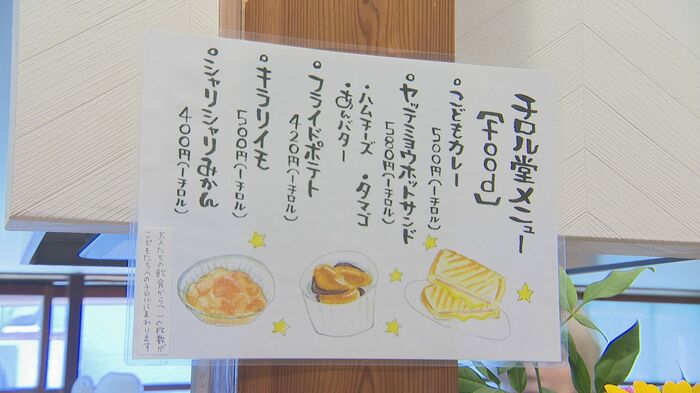 チロル堂メニュー
【food】
•こどもカレー
500円(一チロル)
•ヤッテミヨウホットサンド
580円(一チロル)
・ハムチーズ ・タマゴ
・あんバター
•フライドポテト
420円(一チロル)
•キラリイモ
500円(一チロル)
•シャリシャリみかん
400円(一チロル)
大人たちの飲食から( )の枚数が
こどもたちへのチロルにまわります